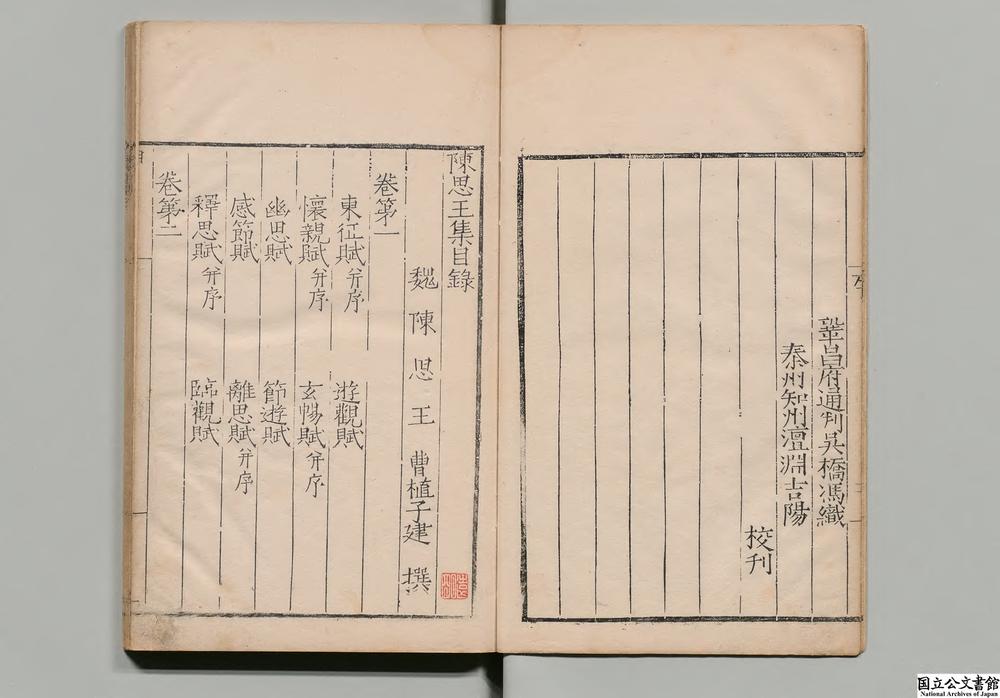 鞏昌府通判吳橋馮織
秦州知州澶淵吉陽
校刊
陳思王集目錄
魏 陳 思 王 曹植子建 撰
卷第一
東征賦并序 遊觀賦
懷親賦并序 玄暢賦并序
幽思賦 節遊賦
感節賦 離思賦并序
釋思賦并序 臨觀賦
卷第二
国立公文書館
National Archives of Japan